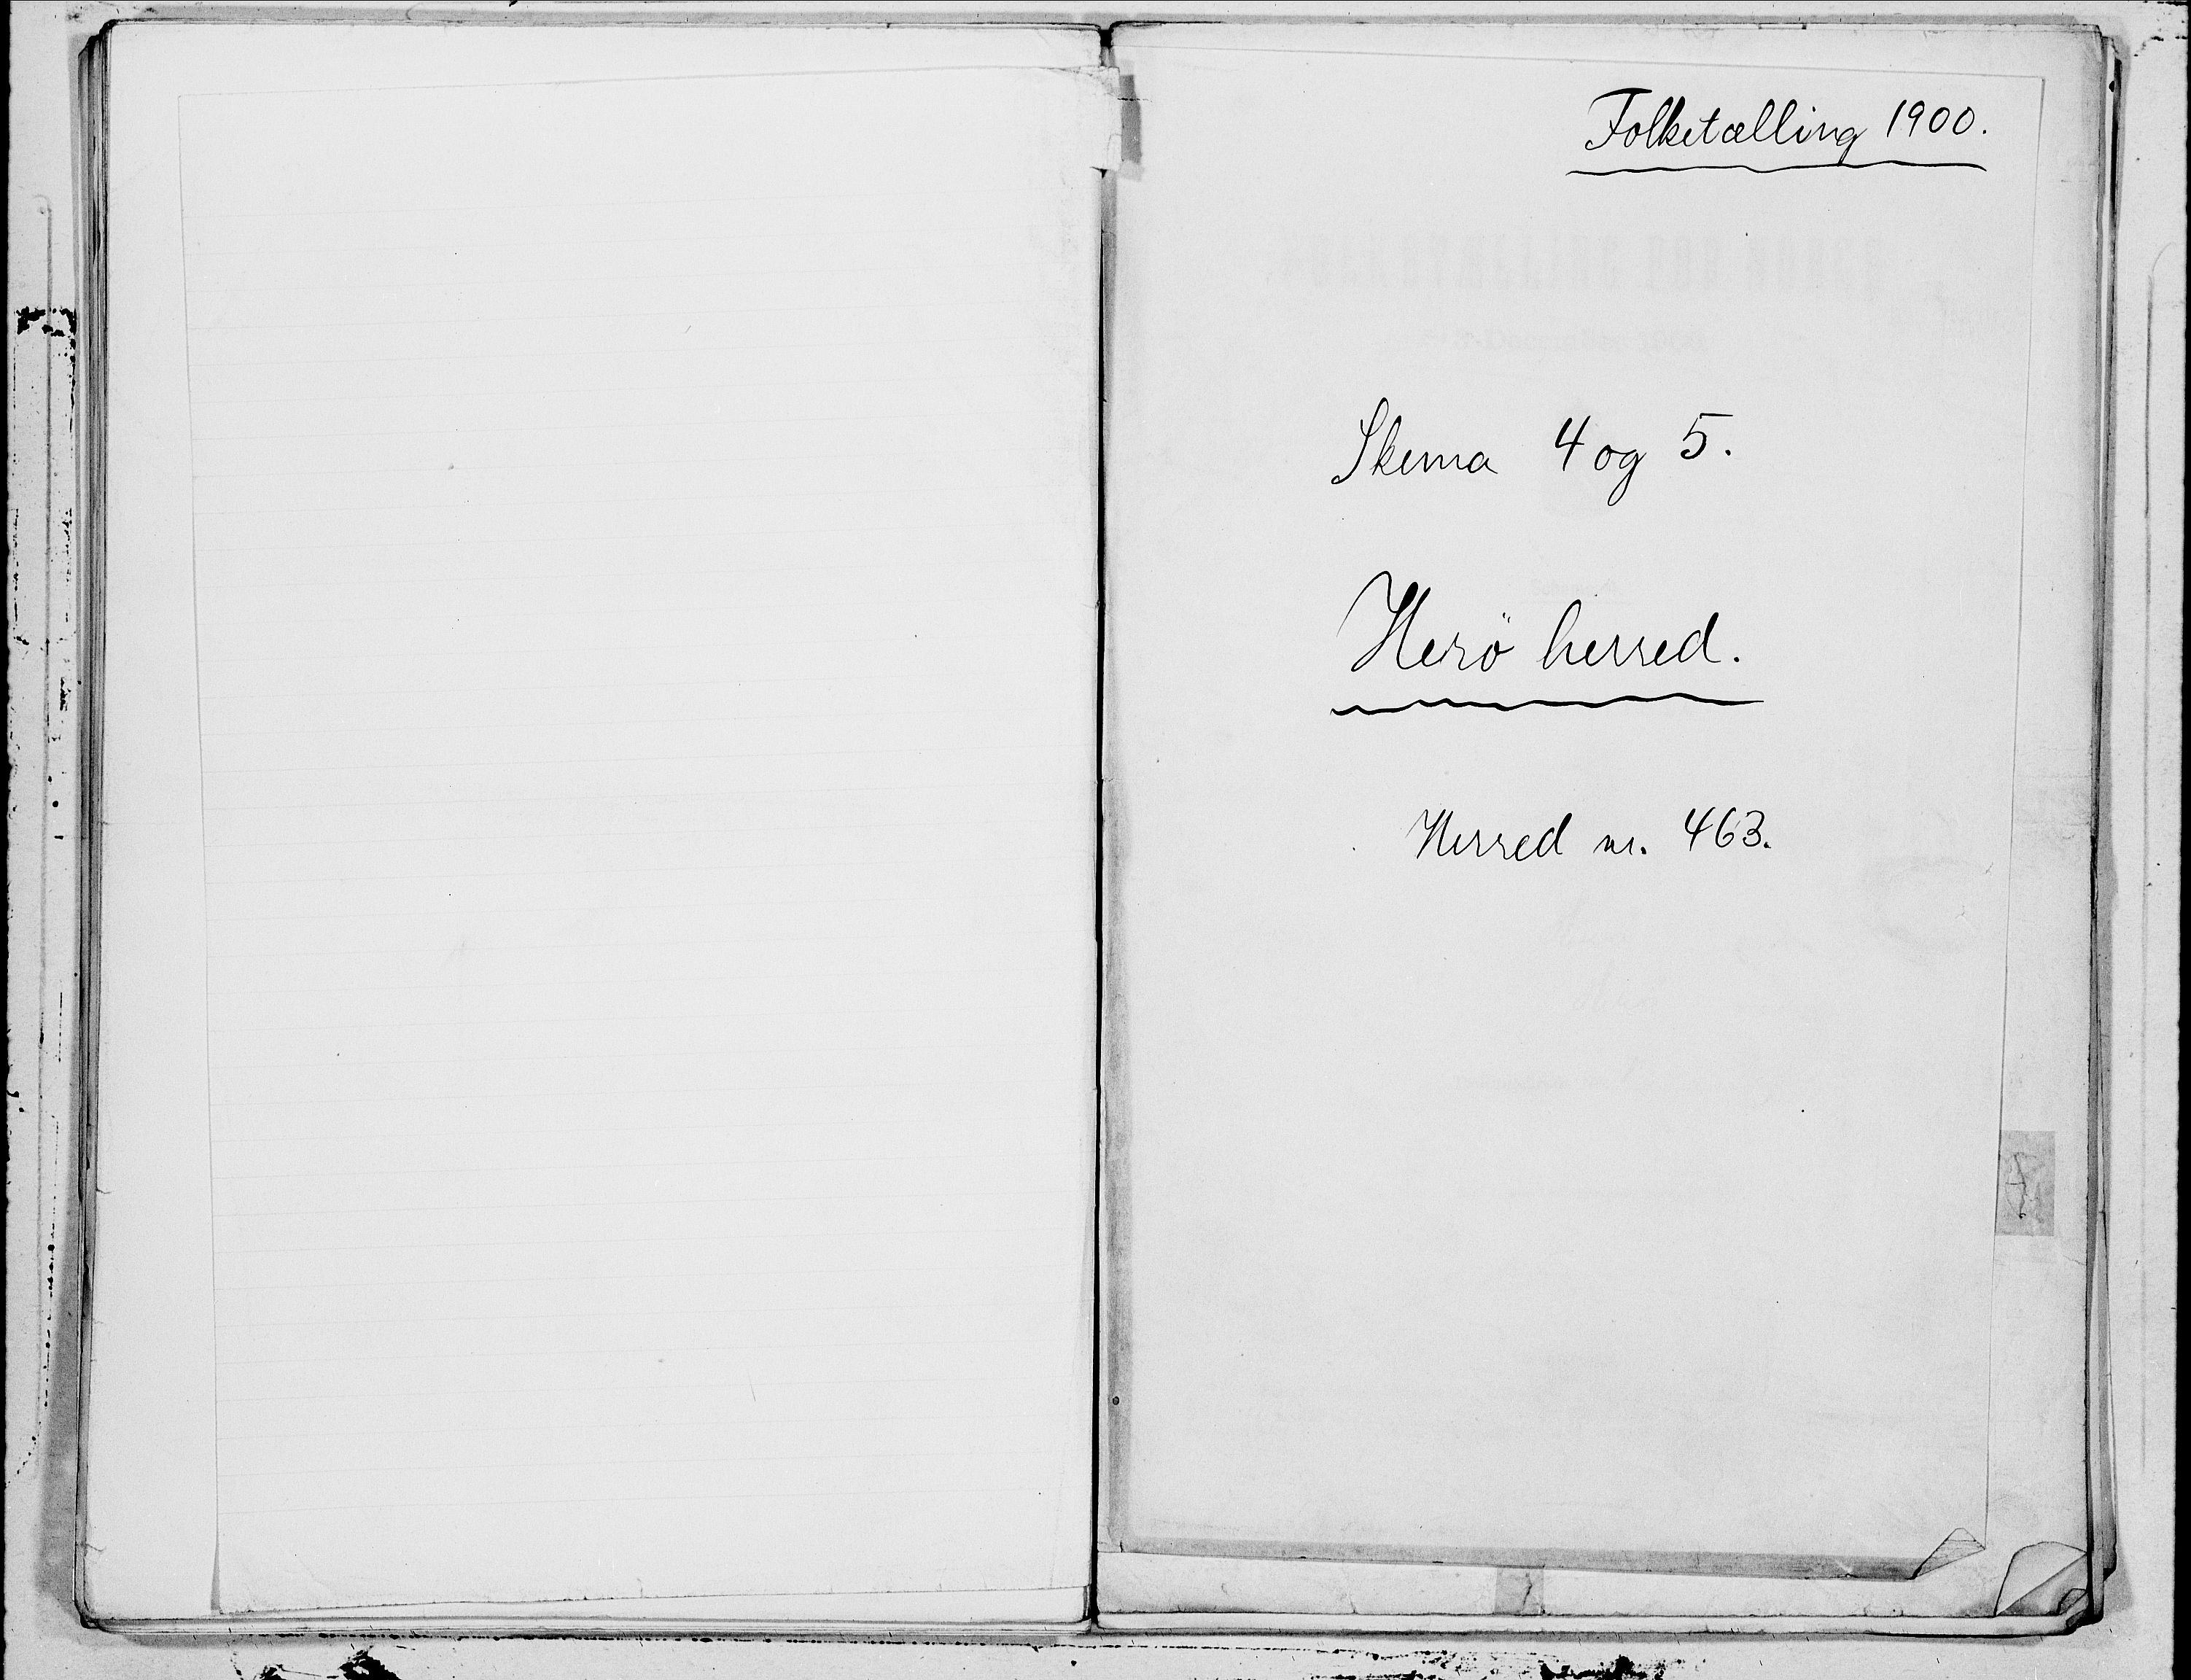 Folketælling 1900.
Skema 4 og 5.
Herö herred.
Herred nr. 463.